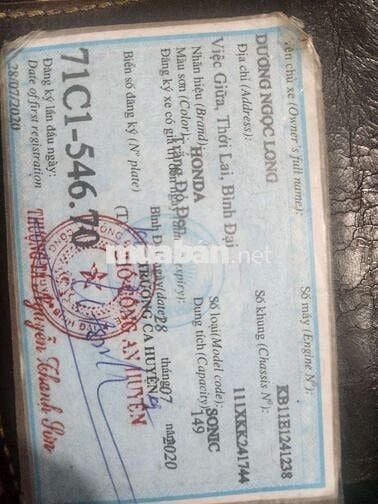 Tên chủ xe (Owner's full name):
DƯƠNG NGỌC LONG
Địa chỉ (Address):
Việc Giữa, Thới Lai, Bình Đại
Nhãn hiệu (Brand): HONDA
Số loại (Model code): SONIC
Màu sơn (Color): Trắng Đỏ Đen
Dung tích (Capacity): 149
Số máy (Engine N°): KB11E1241238
Số khung (Chassis N°): 111XKK241744
Đăng ký xe có giá trị đến ngày
Bình Đại, ngày (date) 28 tháng 07 năm 2020
TRƯỞNG CA HUYỆN
PHÓ CÔNG AN HUYỆN
Biển số đăng ký (N° plate)
71C1-546.70
Đăng ký lần đầu ngày:
Date of first registration
28/07/2020
Nguyễn Thanh Sơn
muaban.net